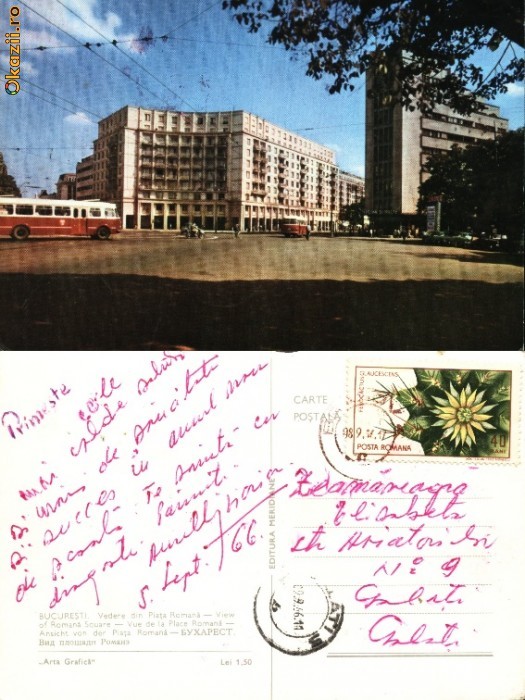 Okazii.ro
Primește cele
mai calde salutări
și urări de sănătate
și succes în anul nou
de școală. Te sărută cu
dragoste
5 Sept. /66.
CARTE
POȘTALĂ
POSTA ROMANA
40
BANI
EDITURA MERIDIANE
Elisabeta
str Aviatorilor
Nº 9
Galați
Galați
BUCUREȘTI. Vedere din Piața Romană — View
of Romană Square — Vue de la Place Romană —
Ansicht von der Piața Romană — БУХАРЕСТ.
Вид площади Романэ
„Arta Grafică"
Lei 1,50